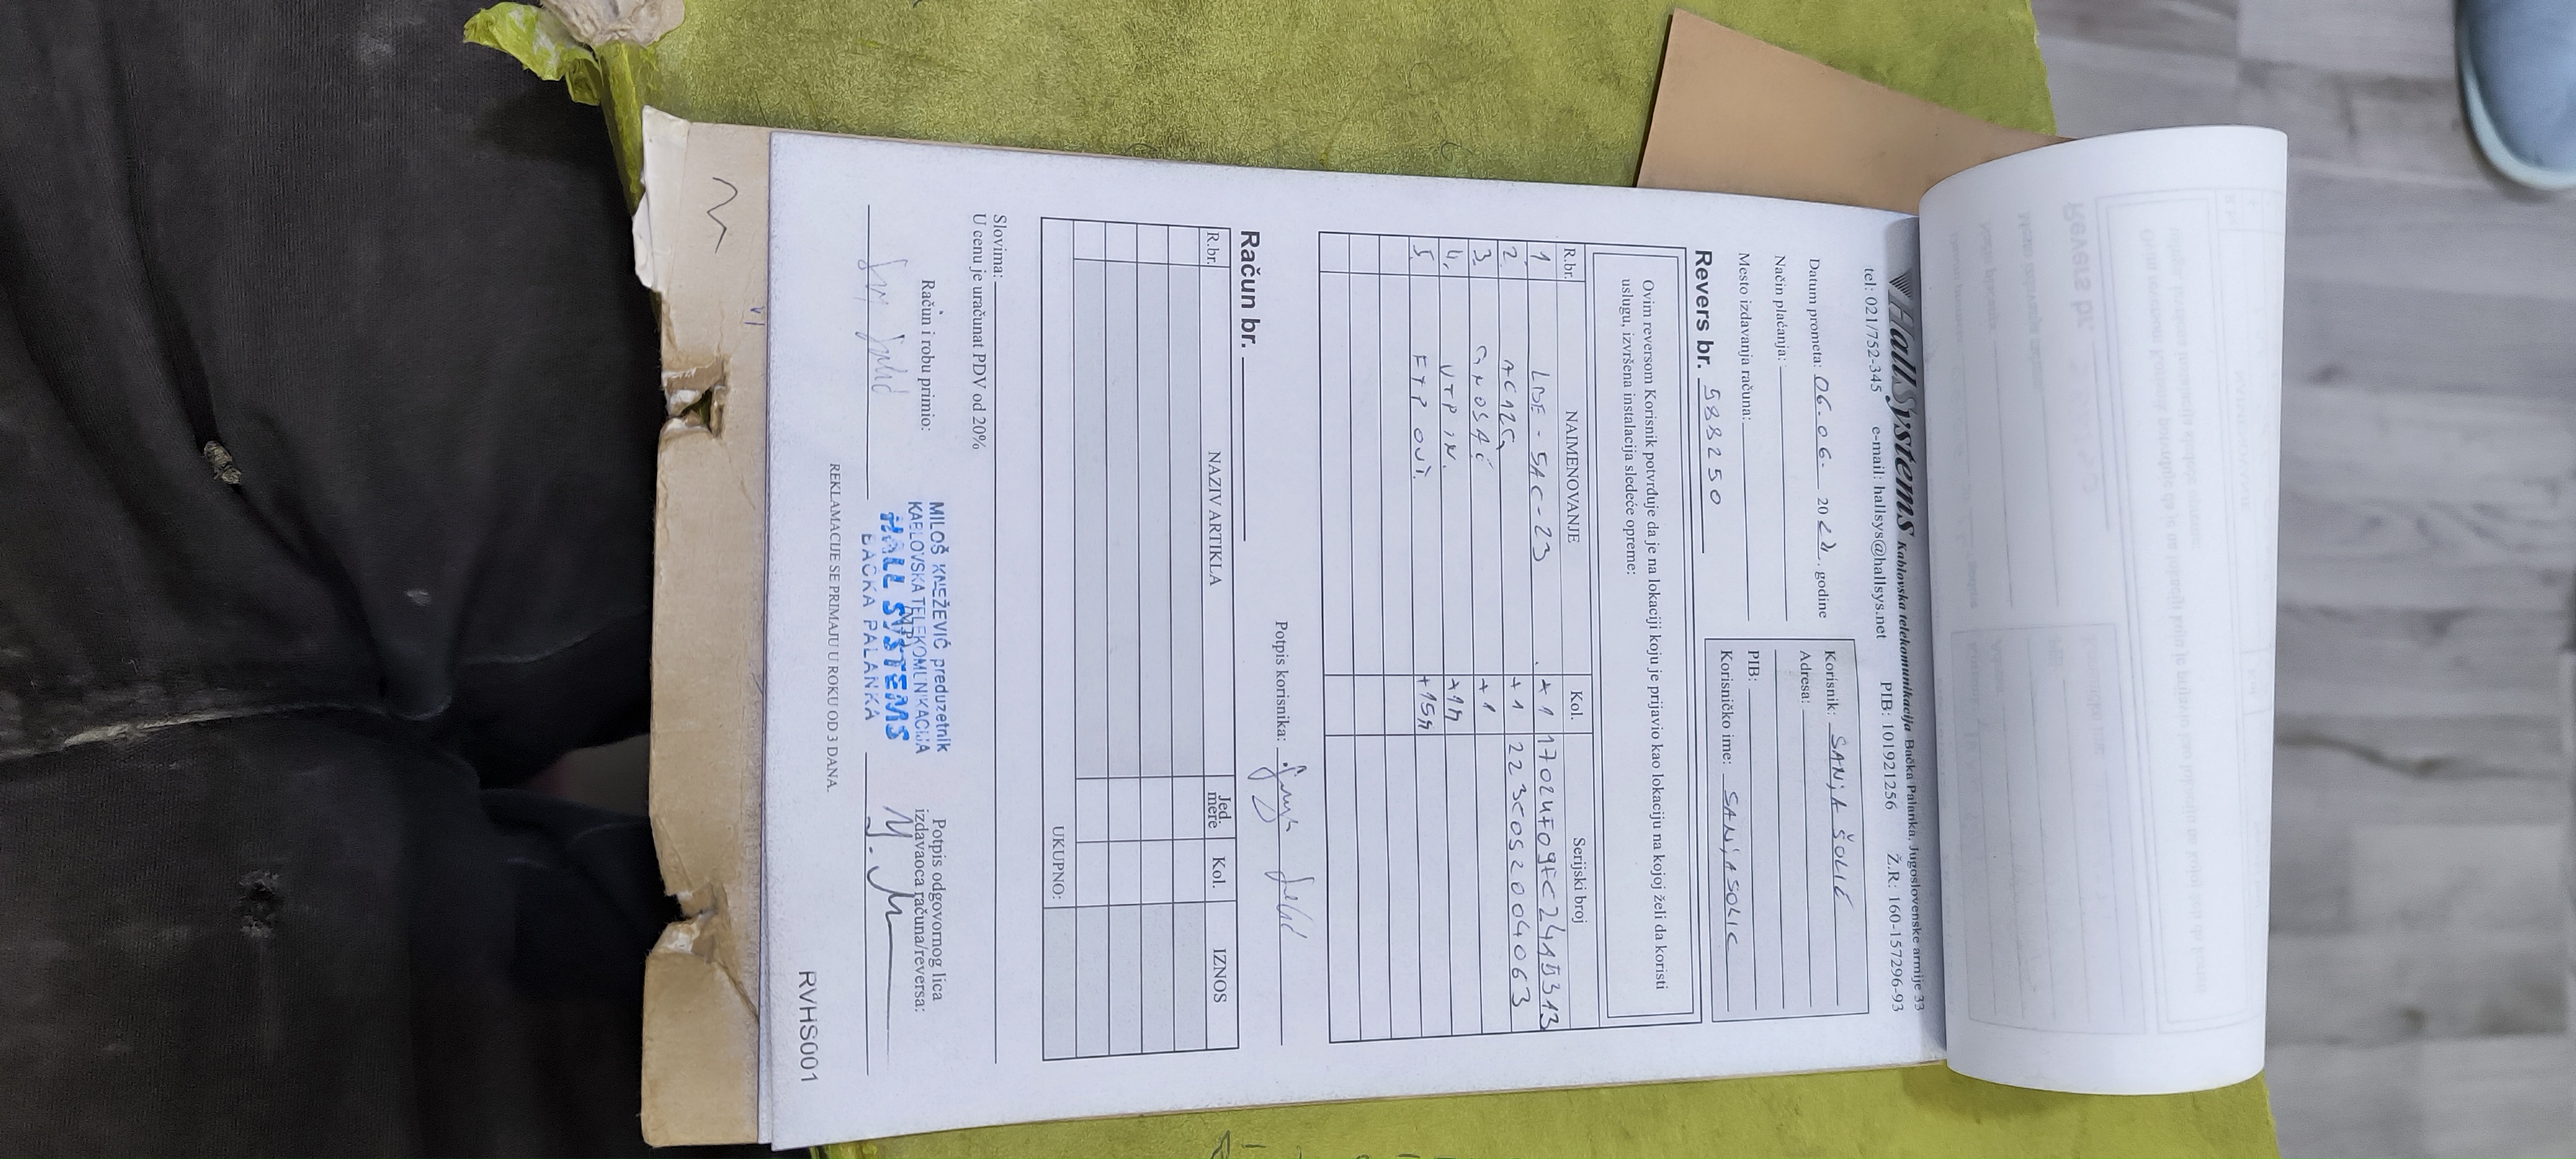 HallSystems Kablovska telekomunikacija Bačka Palanka, Jugoslovenske armije 33
tel: 021/752-345 e-mail: hallsys@hallsys.net PIB: 101921256 Ž.R: 160-157296-93
Datum prometa: 06.06. 20 godine
Način plaćanja:
Mesto izdavanja računa:
Korisnik: SANJA ŠOLIĆ
Adresa:
PIB:
Korisničko ime: SANJASOLIC
Revers br. 588250
Ovim reversom Korisnik potvrđuje da je na lokaciji koju je prijavio kao lokaciju na kojoj želi da koristi
uslugu, izvršena instalacija sledeće opreme:
R.br. NAIMENOVANJE Kol. Serijski broj
1 LDF-5AC-23 +1
2. AC12G +1 223C0S2004063
3. G NOSAČ +1
4. UTP IN. +1m
5. FTP OUT. +15m
Potpis korisnika:
Račun br.
R.br. NAZIV ARTIKLA Jed. mere Kol. IZNOS
UKUPNO:
Slovima:
U cenu je uračunat PDV od 20%
Račun i robu primio:
MILOŠ KNEŽEVIĆ preduzetnik
KABLOVSKA TELEKOMUNIKACIJA
MP
HALL SYSTEMS
BAČKA PALANKA
Potpis odgovornog lica
izdavaoca računa/reversa:
REKLAMACIJE SE PRIMAJU U ROKU OD 3 DANA.
RVHS001